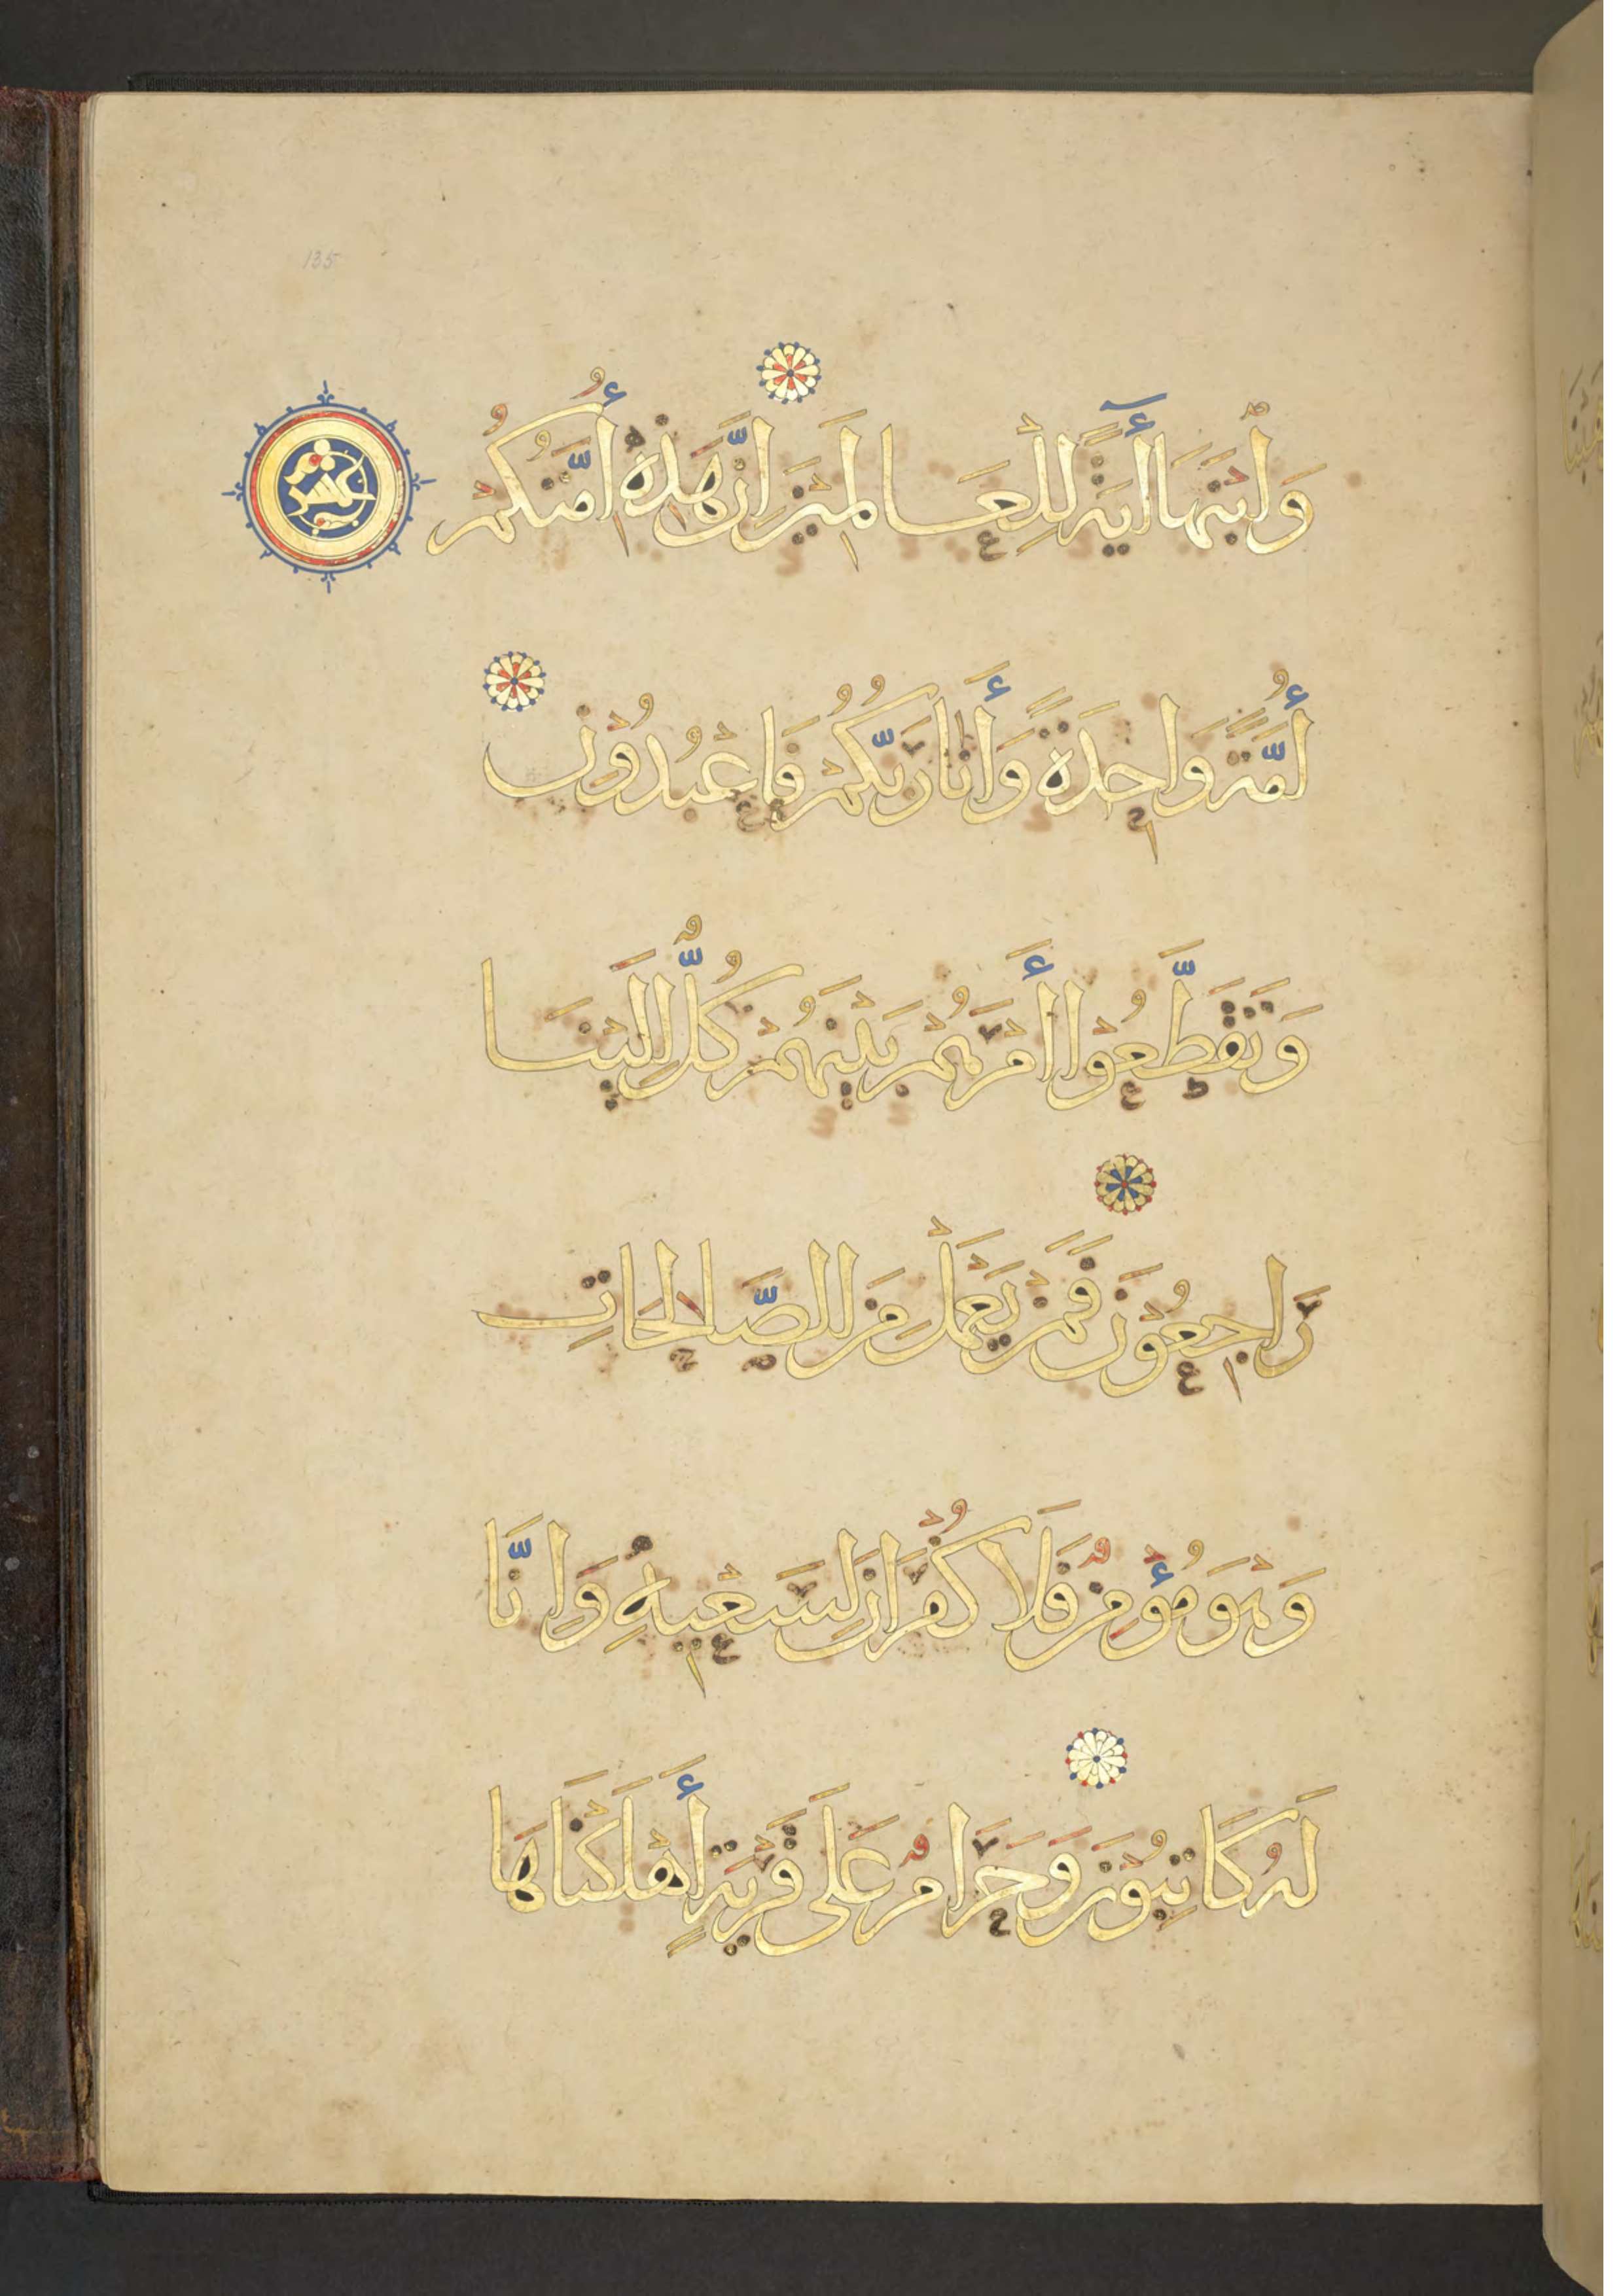 135
وَابْنَهَا أَيَةً لِلْعَالَمِيْنَ إِنَّ هَذِهِ أُمَّتُكُمْ
عشر
أُمَّةً وَاحِدَةً وَأَنَا رَبُّكُمْ فَاعْبُدُوْنِ
وَتَقَطَّعُوْا أَمْرَهُمْ بَيْنَهُمْ كُلٌّ اِلَيْنَا
رَاجِعُوْنَ فَمَنْ يَعْمَلْ مِنَ الصَّالِحَاتِ
وَهْوَ مُؤْمِنٌ فَلَا كُفْرَانَ لِسَعْيِهِ وَاِنَّا
لَهُ كَاتِبُوْنَ وَحَرَامٌ عَلَى قَرْيَةٍ أَهْلَكْنَاهَا